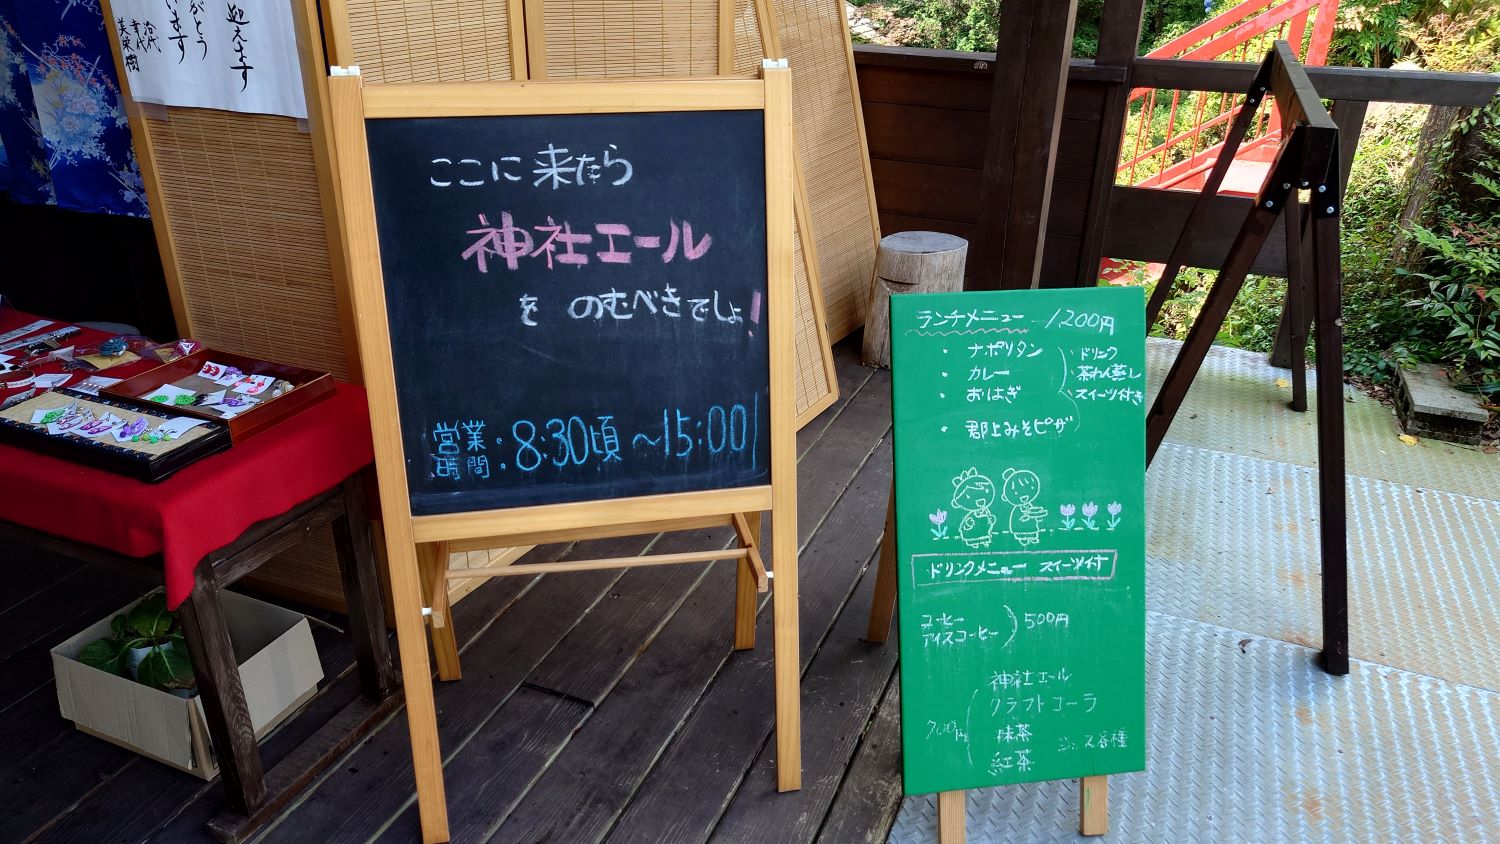 迎えます
がとう
います
美栄樹
ここに来たら
神社エール
を のむべきでしょ!
営業時間:8:30頃~15:00
ランチメニュー 1,200円
・ナポリタン
・カレー
・おはぎ
・郡上みそピザ
・ドリンク
・茶わん蒸し
・スイーツ付き
ドリンクメニュー スイーツ付
コーヒー
アイスコーヒー
500円
神社エール
クラフトコーラ
抹茶
紅茶
700円